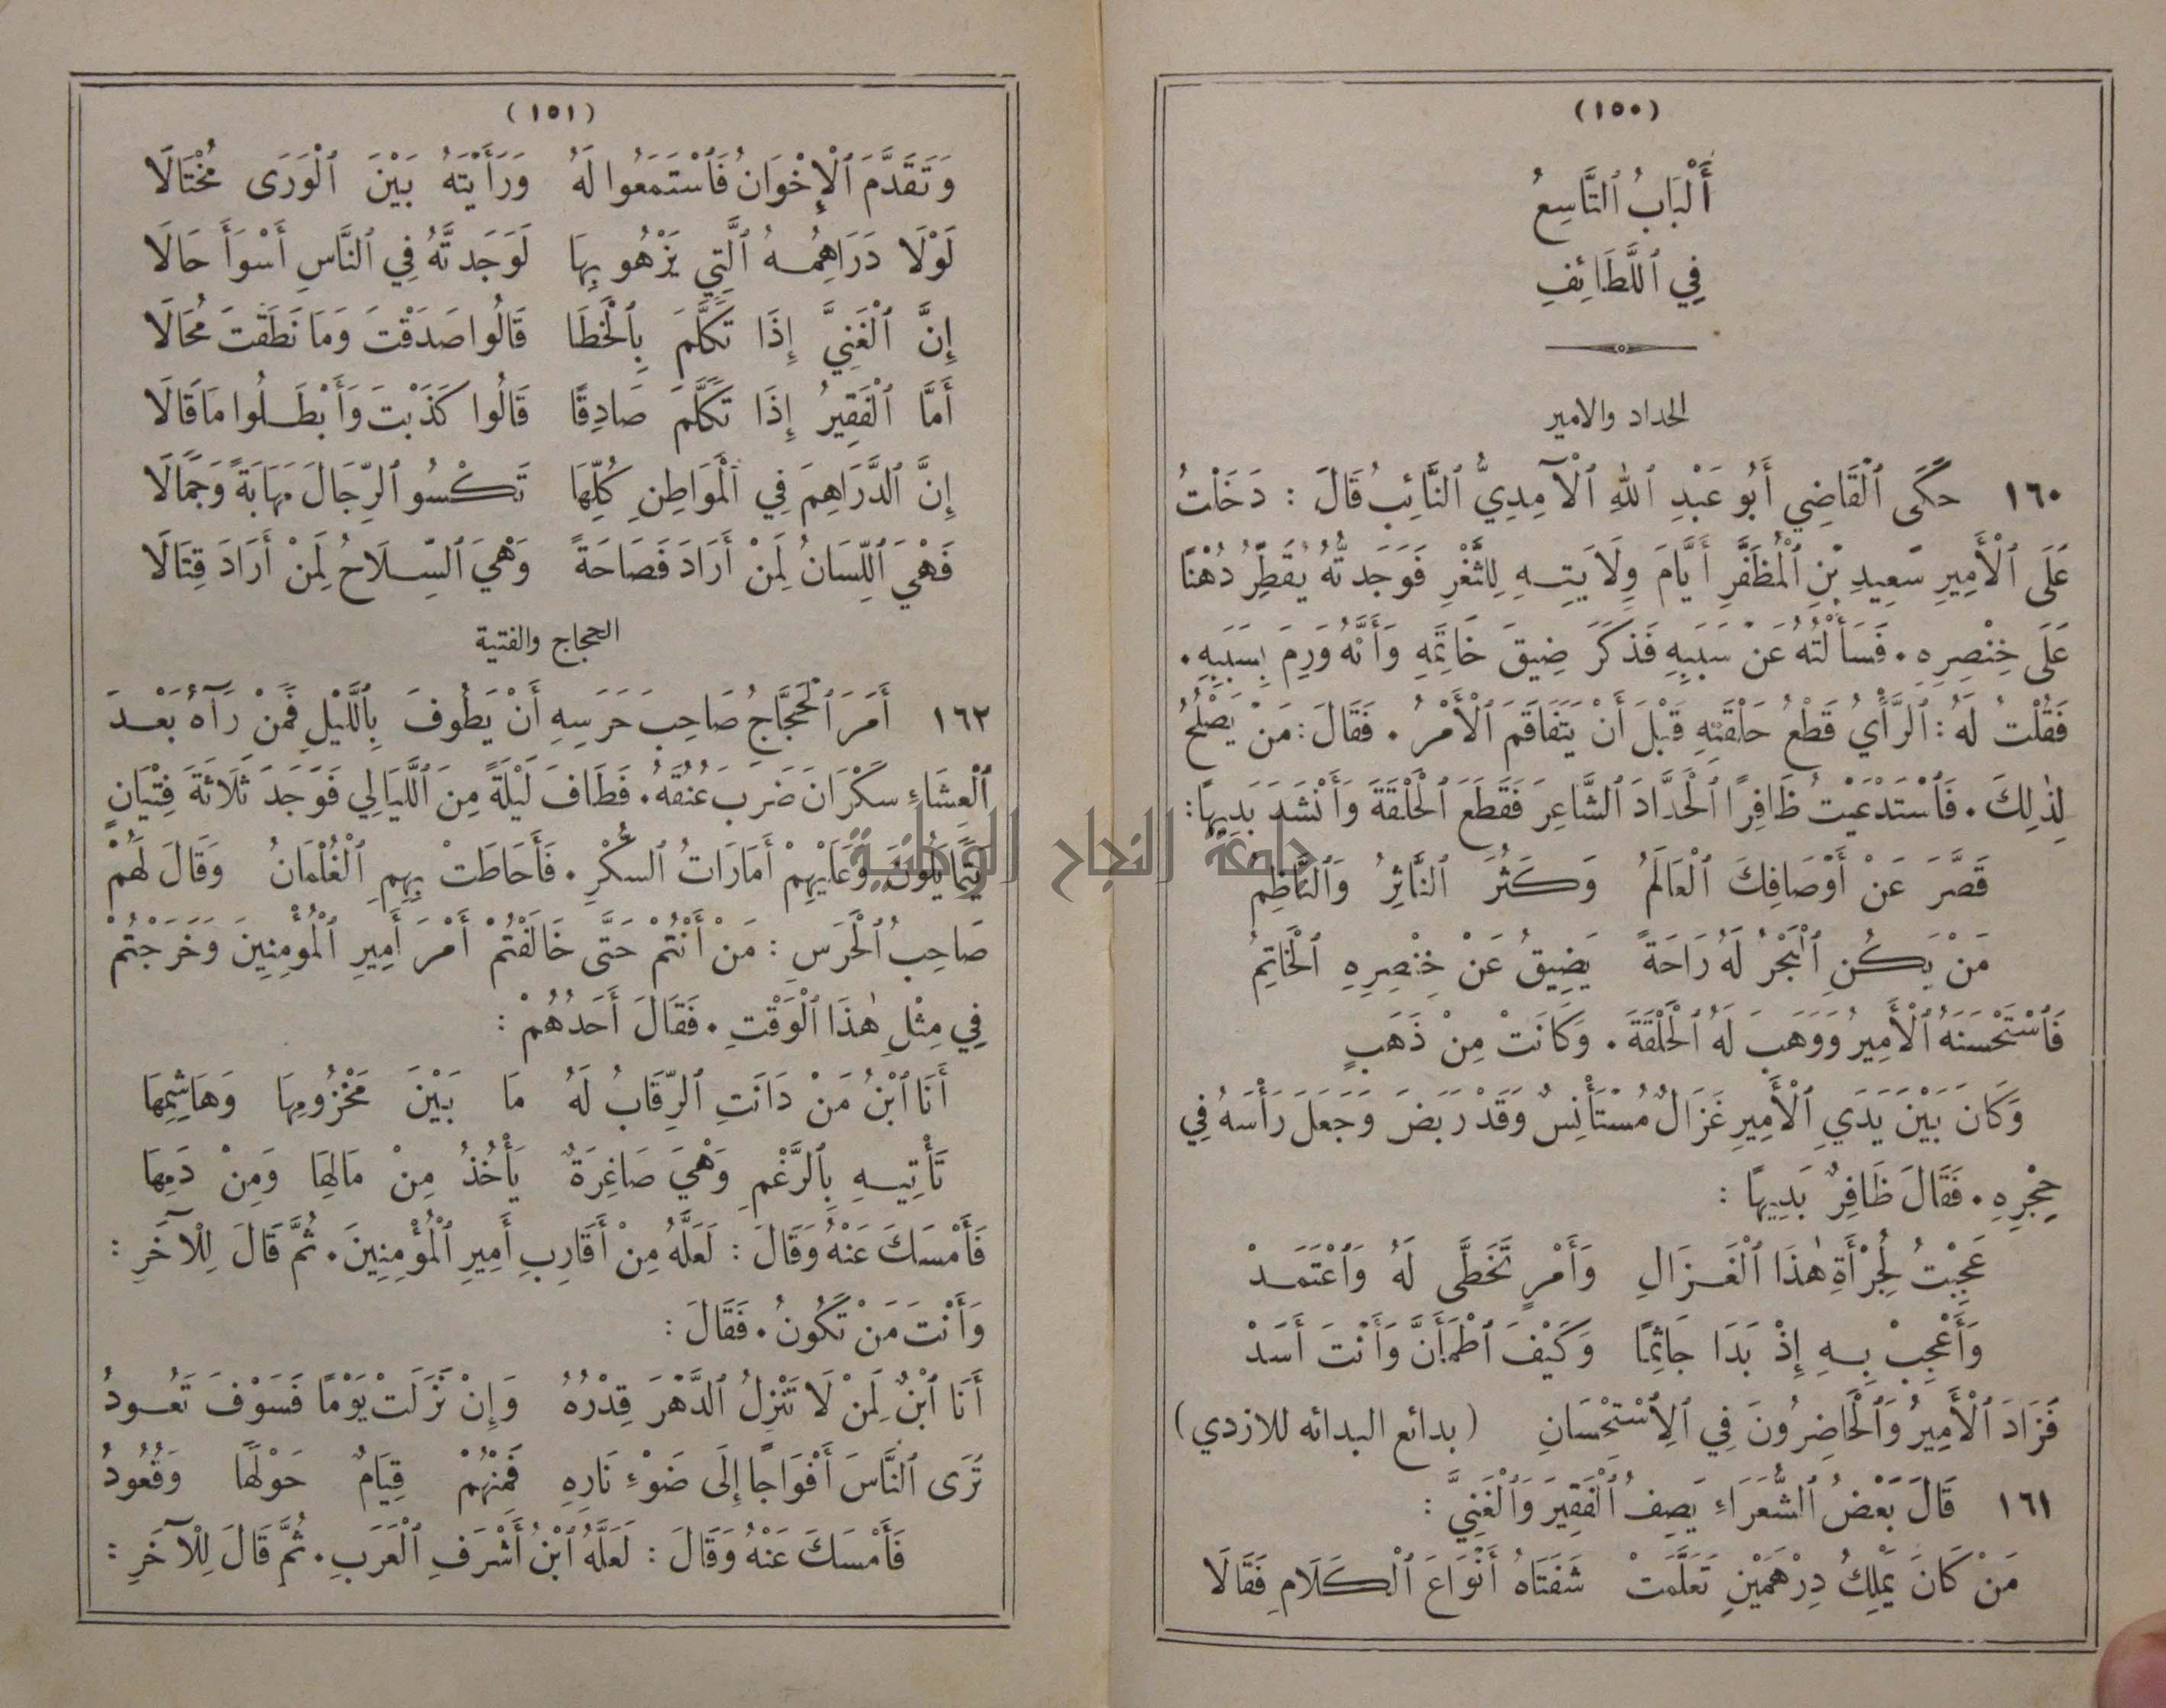 (١٥٠)
أَلْبَابُ ٱلتَّاسِعُ
فِي ٱللَّطَائِفِ
الحداد والامير
١٦٠ حَكَى ٱلْقَاضِي أَبُو عَبْدِ ٱللهِ ٱلْآمِدِيُّ ٱلنَّائِبُ قَالَ : دَخَلْتُ
عَلَى ٱلْأَمِيرِ سَعِيدِ بْنِ ٱلْمُظَفَّرِ أَيَّامَ وِلَايَتِهِ لِلثَّغْرِ فَوَجَدتُّهُ يُقَطِّرُ دُهْنًا
عَلَى خِنْصِرِهِ . فَسَأَلْتُهُ عَنْ سَبَبِهِ فَذَكَرَ ضِيقَ خَاتِمِهِ وَأَنَّهُ وَرِمَ بِسَبَبِهِ .
فَقُلْتُ لَهُ : ٱلرَّأْيُ قَطْعُ حَلْقَتِهِ قَبْلَ أَنْ يَتَفَاقَمَ ٱلْأَمْرُ . فَقَالَ : مَنْ يَصْلُحُ
لِذٰلِكَ . فَٱسْتَدْعَيْتُ ظَافِرًا ٱلْحَدَّادَ ٱلشَّاعِرَ فَقَطَعَ ٱلْحَلْقَةَ وَأَنْشَدَ بَدِيهًا :
قَصَّرَ عَنْ أَوْصَافِكَ ٱلْعَالَمُ وَكَثُرَ ٱلنَّاثِرُ وَٱلنَّاظِمُ
مَنْ يَكُنِ ٱلْبَحْرُ لَهُ رَاحَةً يَضِيقُ عَنْ خِنْصِرِهِ ٱلْخَاتِمُ
فَٱسْتَحْسَنَهُ ٱلْأَمِيرُ وَوَهَبَ لَهُ ٱلْحَلْقَةَ . وَكَانَتْ مِنْ ذَهَبٍ
وَكَانَ بَيْنَ يَدَيِ ٱلْأَمِيرِ غَزَالٌ مُسْتَأْنِسٌ وَقَدْ رَبَضَ وَجَعَلَ رَأْسَهُ فِي
حِجْرِهِ . فَقَالَ ظَافِرٌ بَدِيهًا :
عَجِبْتُ لِجُرْأَةِ هٰذَا ٱلْغَزَالِ وَأَمْرٍ تَخَطَّى لَهُ وَٱعْتَمَدْ
وَأَعْجِبْ بِهِ إِذْ بَدَا جَاثِمًا وَكَيْفَ ٱطْمَأَنَّ وَأَنْتَ أَسَدْ
فَزَادَ ٱلْأَمِيرُ وَٱلْحَاضِرُونَ فِي ٱلِٱسْتِحْسَانِ (بدائع البدائه للازدي)
١٦١ قَالَ بَعْضُ ٱلشُّعَرَاءِ يَصِفُ ٱلْفَقِيرَ وَٱلْغَنِيَّ :
مَنْ كَانَ يَمْلِكُ دِرْهَمَيْنِ تَعَلَّمَتْ شَفَتَاهُ أَنْوَاعَ ٱلْكَلَامِ فَقَالَا
(١٥١)
وَتَقَدَّمَ ٱلْإِخْوَانُ فَٱسْتَمَعُوا لَهُ وَرَأَيْتَهُ بَيْنَ ٱلْوَرَى مُخْتَالَا
لَوْلَا دَرَاهِمُهُ ٱلَّتِي يَزْهُو بِهَا لَوَجَدتَّهُ فِي ٱلنَّاسِ أَسْوَأَ حَالَا
إِنَّ ٱلْغَنِيَّ إِذَا تَكَلَّمَ بِٱلْخَطَا قَالُوا صَدَقْتَ وَمَا نَطَقْتَ مُحَالَا
أَمَّا ٱلْفَقِيرُ إِذَا تَكَلَّمَ صَادِقًا قَالُوا كَذَبْتَ وَأَبْطَلُوا مَا قَالَا
إِنَّ ٱلدَّرَاهِمَ فِي ٱلْمَوَاطِنِ كُلِّهَا تَكْسُو ٱلرِّجَالَ مَهَابَةً وَجَمَالَا
فَهْيَ ٱللِّسَانُ لِمَنْ أَرَادَ فَصَاحَةً وَهْيَ ٱلسِّلَاحُ لِمَنْ أَرَادَ قِتَالَا
الحجاج والفتية
١٦٢ أَمَرَ ٱلْحَجَّاجُ صَاحِبَ حَرَسِهِ أَنْ يَطُوفَ بِٱللَّيْلِ فَمَنْ رَآهُ بَعْدَ
ٱلْعِشَاءِ سَكْرَانَ ضَرَبَ عُنُقَهُ . فَطَافَ لَيْلَةً مِنَ ٱللَّيَالِي فَوَجَدَ ثَلَاثَةَ فِتْيَانٍ
يَتَمَايَلُونَ وَعَلَيْهِمْ أَمَارَاتُ ٱلسُّكْرِ . فَأَحَاطَتْ بِهِمِ ٱلْغُلْمَانُ وَقَالَ لَهُمْ
صَاحِبُ ٱلْحَرَسِ : مَنْ أَنْتُمْ حَتَّى خَالَفْتُمْ أَمْرَ أَمِيرِ ٱلْمُؤْمِنِينَ وَخَرَجْتُمْ
فِي مِثْلِ هٰذَا ٱلْوَقْتِ . فَقَالَ أَحَدُهُمْ :
أَنَا ٱبْنُ مَنْ دَانَتِ ٱلرِّقَابُ لَهُ مَا بَيْنَ مَخْزُومِهَا وَهَاشِمِهَا
تَأْتِيهِ بِٱلرَّغْمِ وَهْيَ صَاغِرَةٌ يَأْخُذُ مِنْ مَالِهَا وَمِنْ دَمِهَا
فَأَمْسَكَ عَنْهُ وَقَالَ : لَعَلَّهُ مِنْ أَقَارِبِ أَمِيرِ ٱلْمُؤْمِنِينَ . ثُمَّ قَالَ لِلْآخَرِ :
وَأَنْتَ مَنْ تَكُونُ . فَقَالَ :
أَنَا ٱبْنٌ لِمَنْ لَا تَنْزِلُ ٱلدَّهْرَ قِدْرُهُ وَإِنْ نَزَلَتْ يَوْمًا فَسَوْفَ تَعُودُ
تَرَى ٱلنَّاسَ أَفْوَاجًا إِلَى ضَوْءِ نَارِهِ فَمِنْهُمْ قِيَامٌ حَوْلَهَا وَقُعُودُ
فَأَمْسَكَ عَنْهُ وَقَالَ : لَعَلَّهُ ٱبْنُ أَشْرَفِ ٱلْعَرَبِ . ثُمَّ قَالَ لِلْآخَرِ :
جامعة النجاح الوطنية